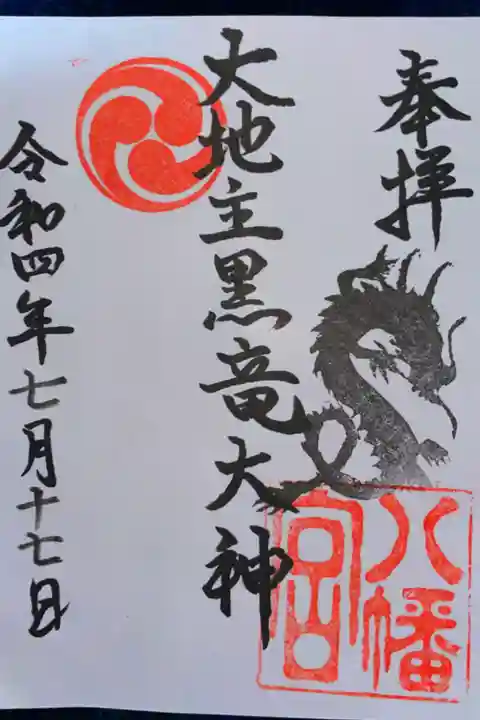 奉拝
大地主黒竜大神
八幡宮
令和四年七月十七日